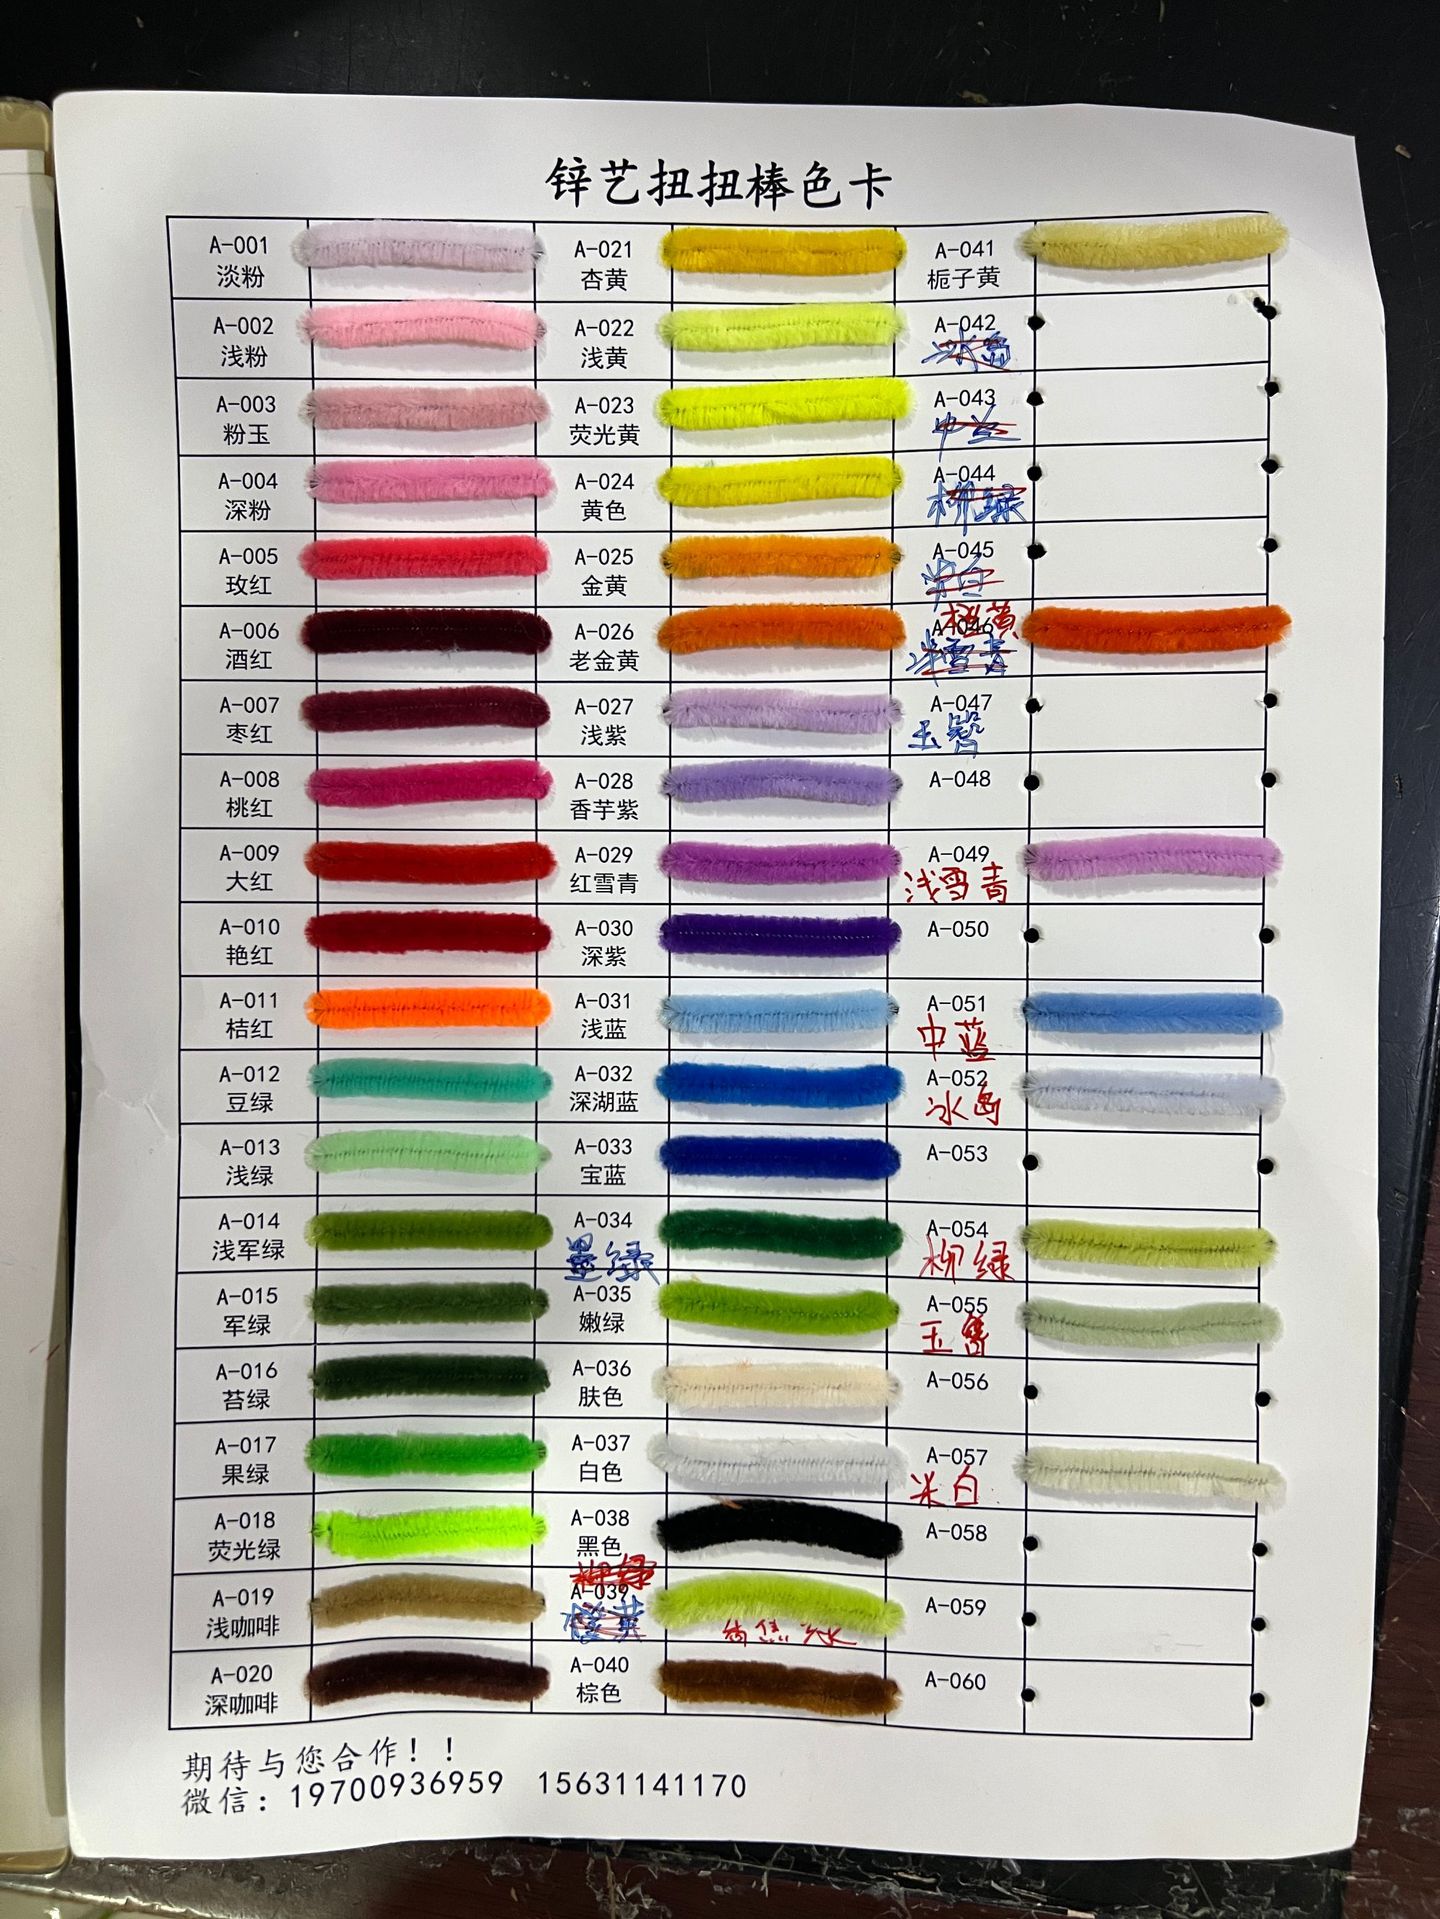 锌艺扭扭棒色卡
A-001
淡粉
A-002
浅粉
A-003
粉玉
A-004
深粉
A-005
玫红
A-006
酒红
A-007
枣红
A-008
桃红
A-009
大红
A-010
艳红
A-011
桔红
A-012
豆绿
A-013
浅绿
A-014
浅军绿
A-015
军绿
A-016
苔绿
A-017
果绿
A-018
荧光绿
A-019
浅咖啡
A-020
深咖啡
A-021
杏黄
A-022
浅黄
A-023
荧光黄
A-024
黄色
A-025
金黄
A-026
老金黄
A-027
浅紫
A-028
香芋紫
A-029
红雪青
A-030
深紫
A-031
浅蓝
A-032
深湖蓝
A-033
宝蓝
A-034
墨绿
A-035
嫩绿
A-036
肤色
A-037
白色
A-038
黑色
柳绿
A-039
橙黄
A-040
棕色
A-041
栀子黄
A-042
冰岛
A-043
中兰
A-044
柳绿
A-045
米白
橙黄
A-046
浅雪青
A-047
玉簪
A-048
A-049
浅雪青
A-050
A-051
中蓝
A-052
冰岛
A-053
A-054
柳绿
A-055
玉簪
A-056
A-057
米白
A-058
A-059
A-060
期待与您合作！！
微信：19700936959 15631141170